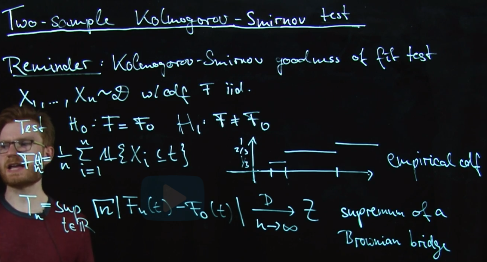 Two-sample Kolmogorov-Smirnov test
Reminder: Kolmogorov-Smirnov goodness of fit test
X₁,..., Xₙ ~ D w/ cdf F iid.
Test H₀: F = F₀ H₁: F ≠ F₀
Fₙ(t) = 1/n Σᵢ₌₁ⁿ 𝟙{Xᵢ ≤ t} 1 2/3 1/3 empirical cdf
Tₙ = sup_{t∈ℝ} √n |Fₙ(t) - F₀(t)| →ᴰ_{n→∞} Z supremum of a
Brownian bridge